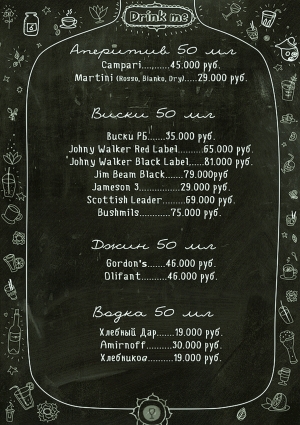 Drink me
Аперитив 50 мл
Campari.......45.000 руб.
Martini (Rosso, Bianko, Dry).....29.000 руб.
Виски 50 мл
Виски РБ.......35.000руб.
Johny Walker Red Label.........65.000 руб.
Johny Walker Black Label......81.000 руб.
Jim Beam Black.......79.000руб
Jameson 3..............29.000 руб.
Scottish Leader.........69.000 руб.
Bushmils............75.000 руб.
Джин 50 мл
Gordon's.......46.000 руб.
Olifant..........46.000 руб.
Водка 50 мл
Хлебный Дар.......19.000 руб.
Amirnoff..........30.000 руб.
Хлебникоа..........19.000 руб.